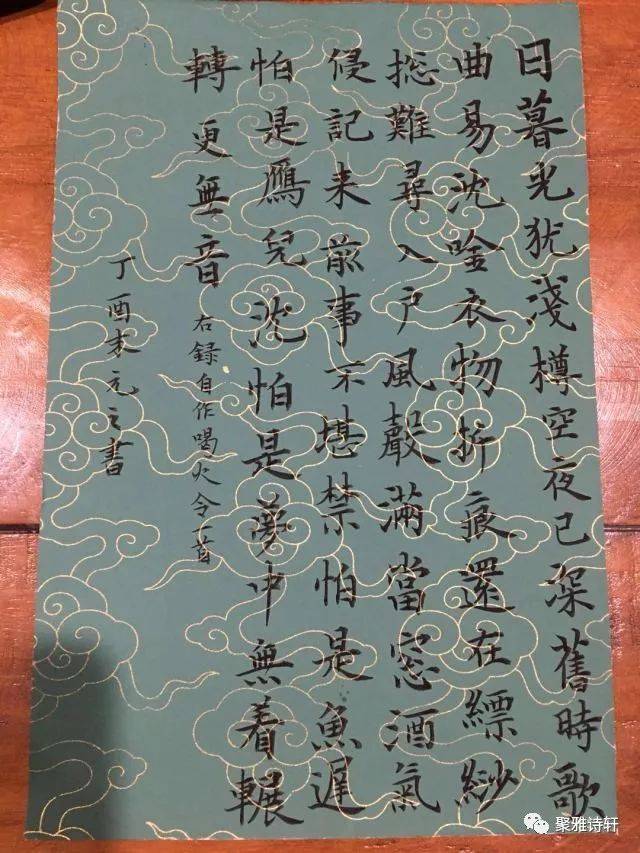 日暮光犹淺樽空夜已深舊時歌
曲易沈唫衣物折痕還在縹紗
捴難尋入戸風嚴滿當窓酒氣
侵記来前事不堪禁怕是魚遲
怕是鴈兒沈怕是夢中無着輾
轉更無音
右錄自作喝火令首
丁酉末元之書
聚雅诗轩